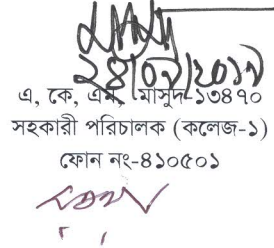 ২৪/০৭/২০১৭
এ, কে, এম, মাসুদ-১৩৪৭০
সহকারী পরিচালক (কলেজ-১)
ফোন নং-৪১০৫০১